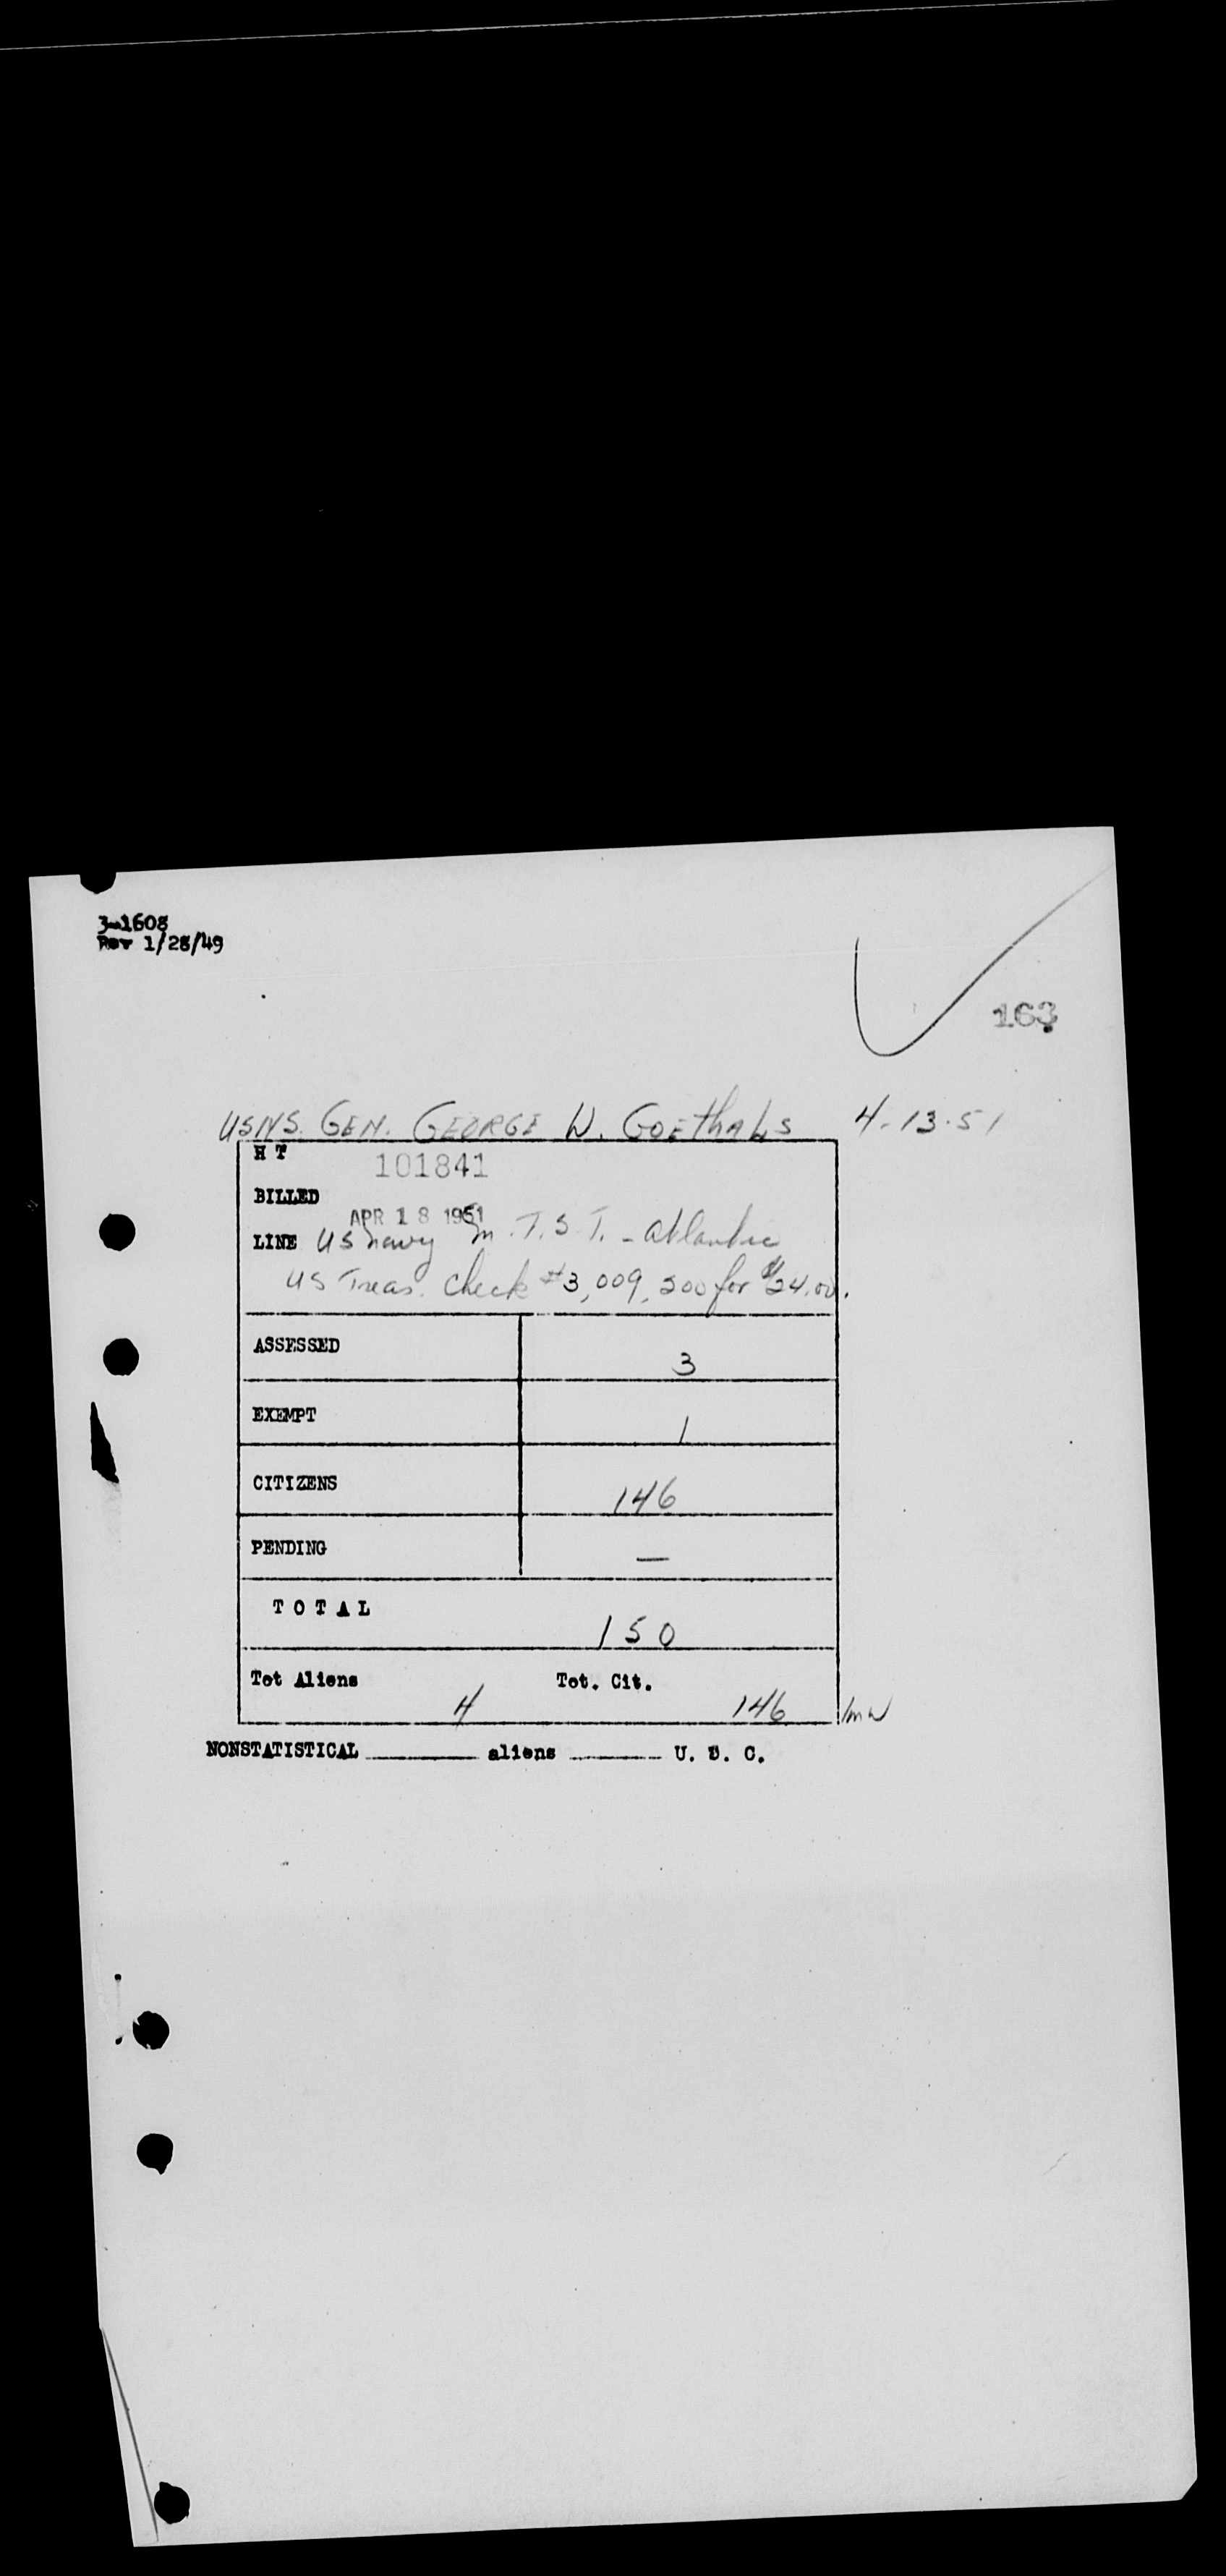 3-1608
Rev 1/28/49
163
USNS. GEN. GEORGE W. GOEthALS 4-13-51
H T 101841
BILLED
APR 18 1951
LINE US Navy M.T.S.T. - Atlantic
US Treas. Check #3,009,200 for $24.00.
ASSESSED 3
EXEMPT 1
CITIZENS 146
PENDING —
TOTAL 150
Tot Aliens 4 Tot. Cit. 146
NONSTATISTICAL ______ aliens ______ U. S. C.